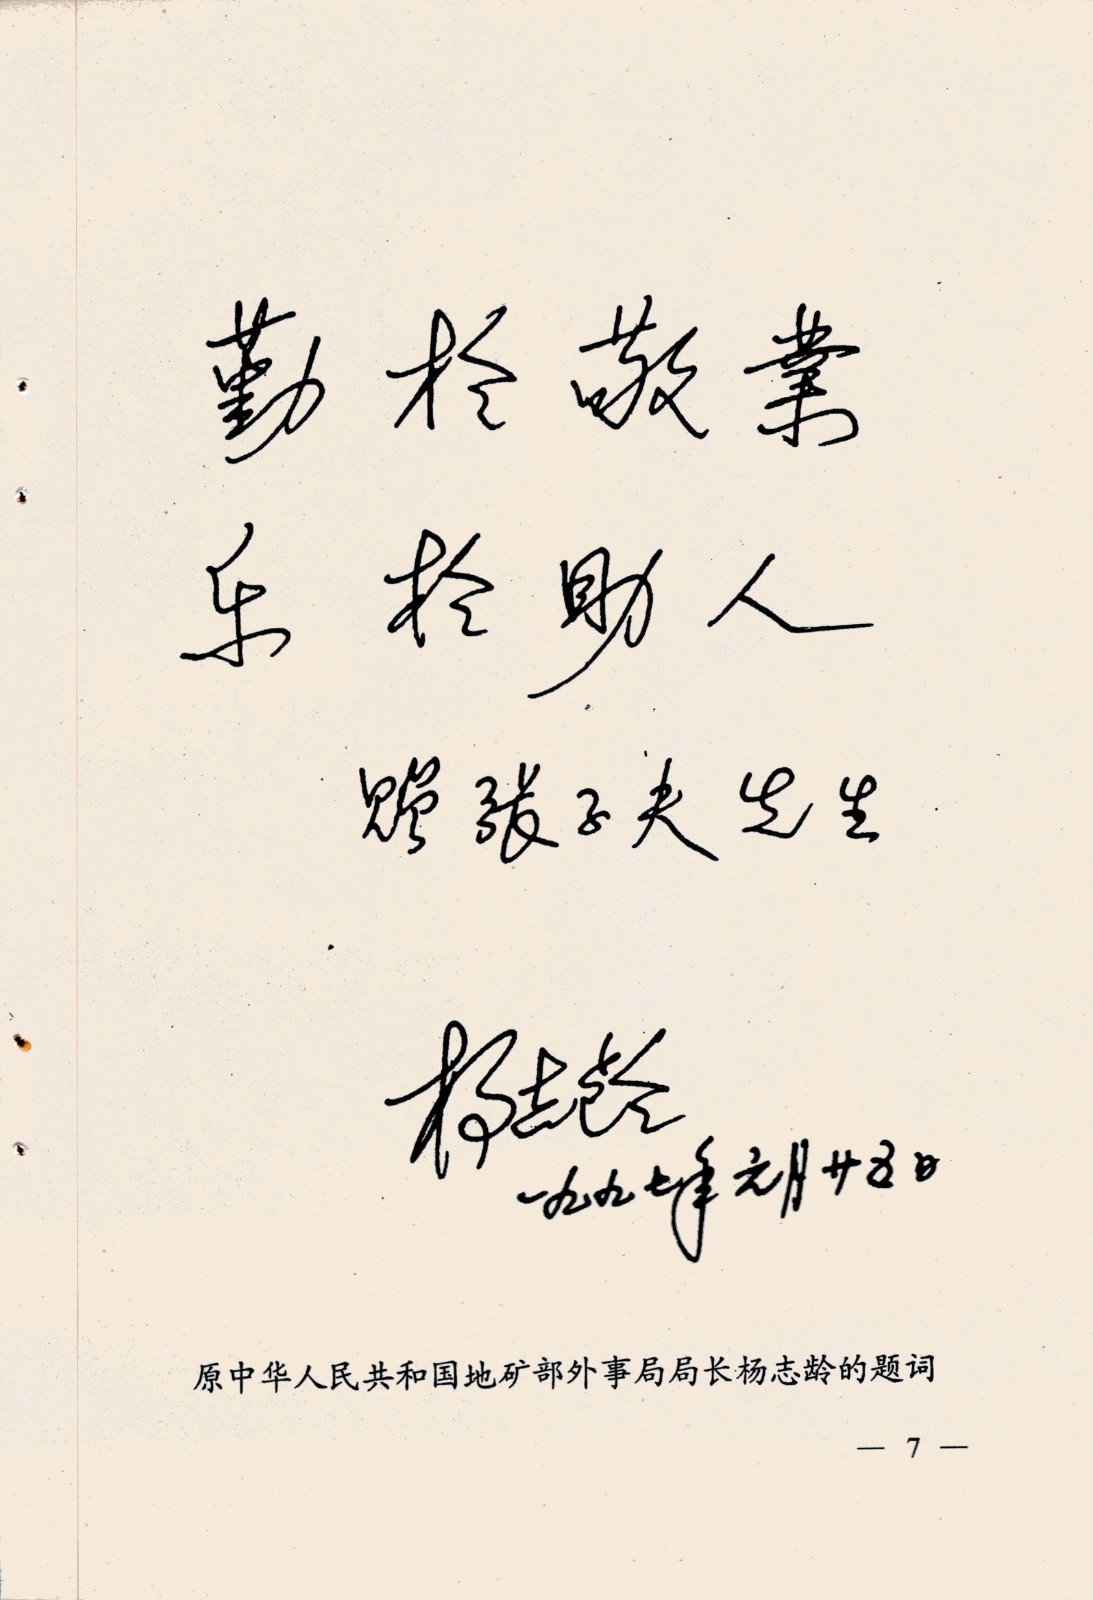 勤於敬業
乐於助人
赠张子夫先生
杨志龄
一九九七年元月廿五日
原中华人民共和国地矿部外事局局长杨志龄的题词
— 7 —